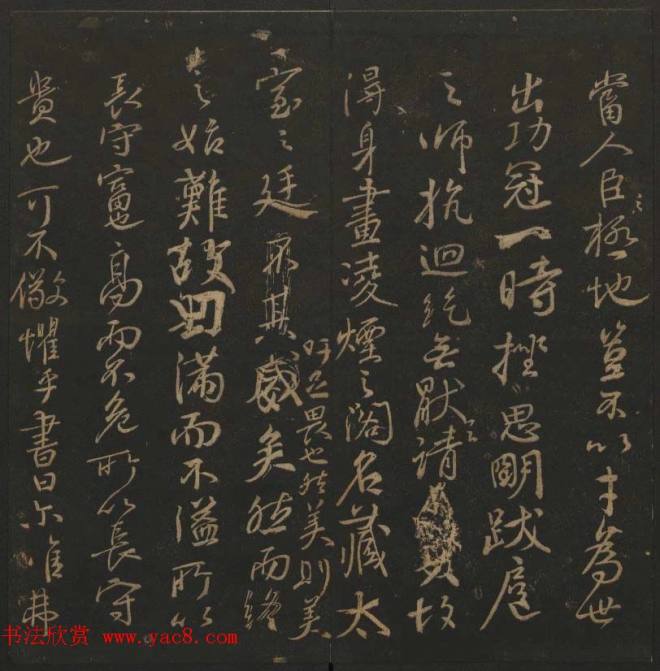 當人臣之極地豈不以才為世
出功冠一時挫思明跋扈
之師抗迴紇無猒之請故
得身畫凌煙之閣名藏太
室之廷其威矣然而終
吁足畏也然美則美
之始難故曰滿而不溢所以
長守富也高而不危所以長守
貴也可不儆懼乎書曰尓唯弗
书法欣赏 www.yac8.com